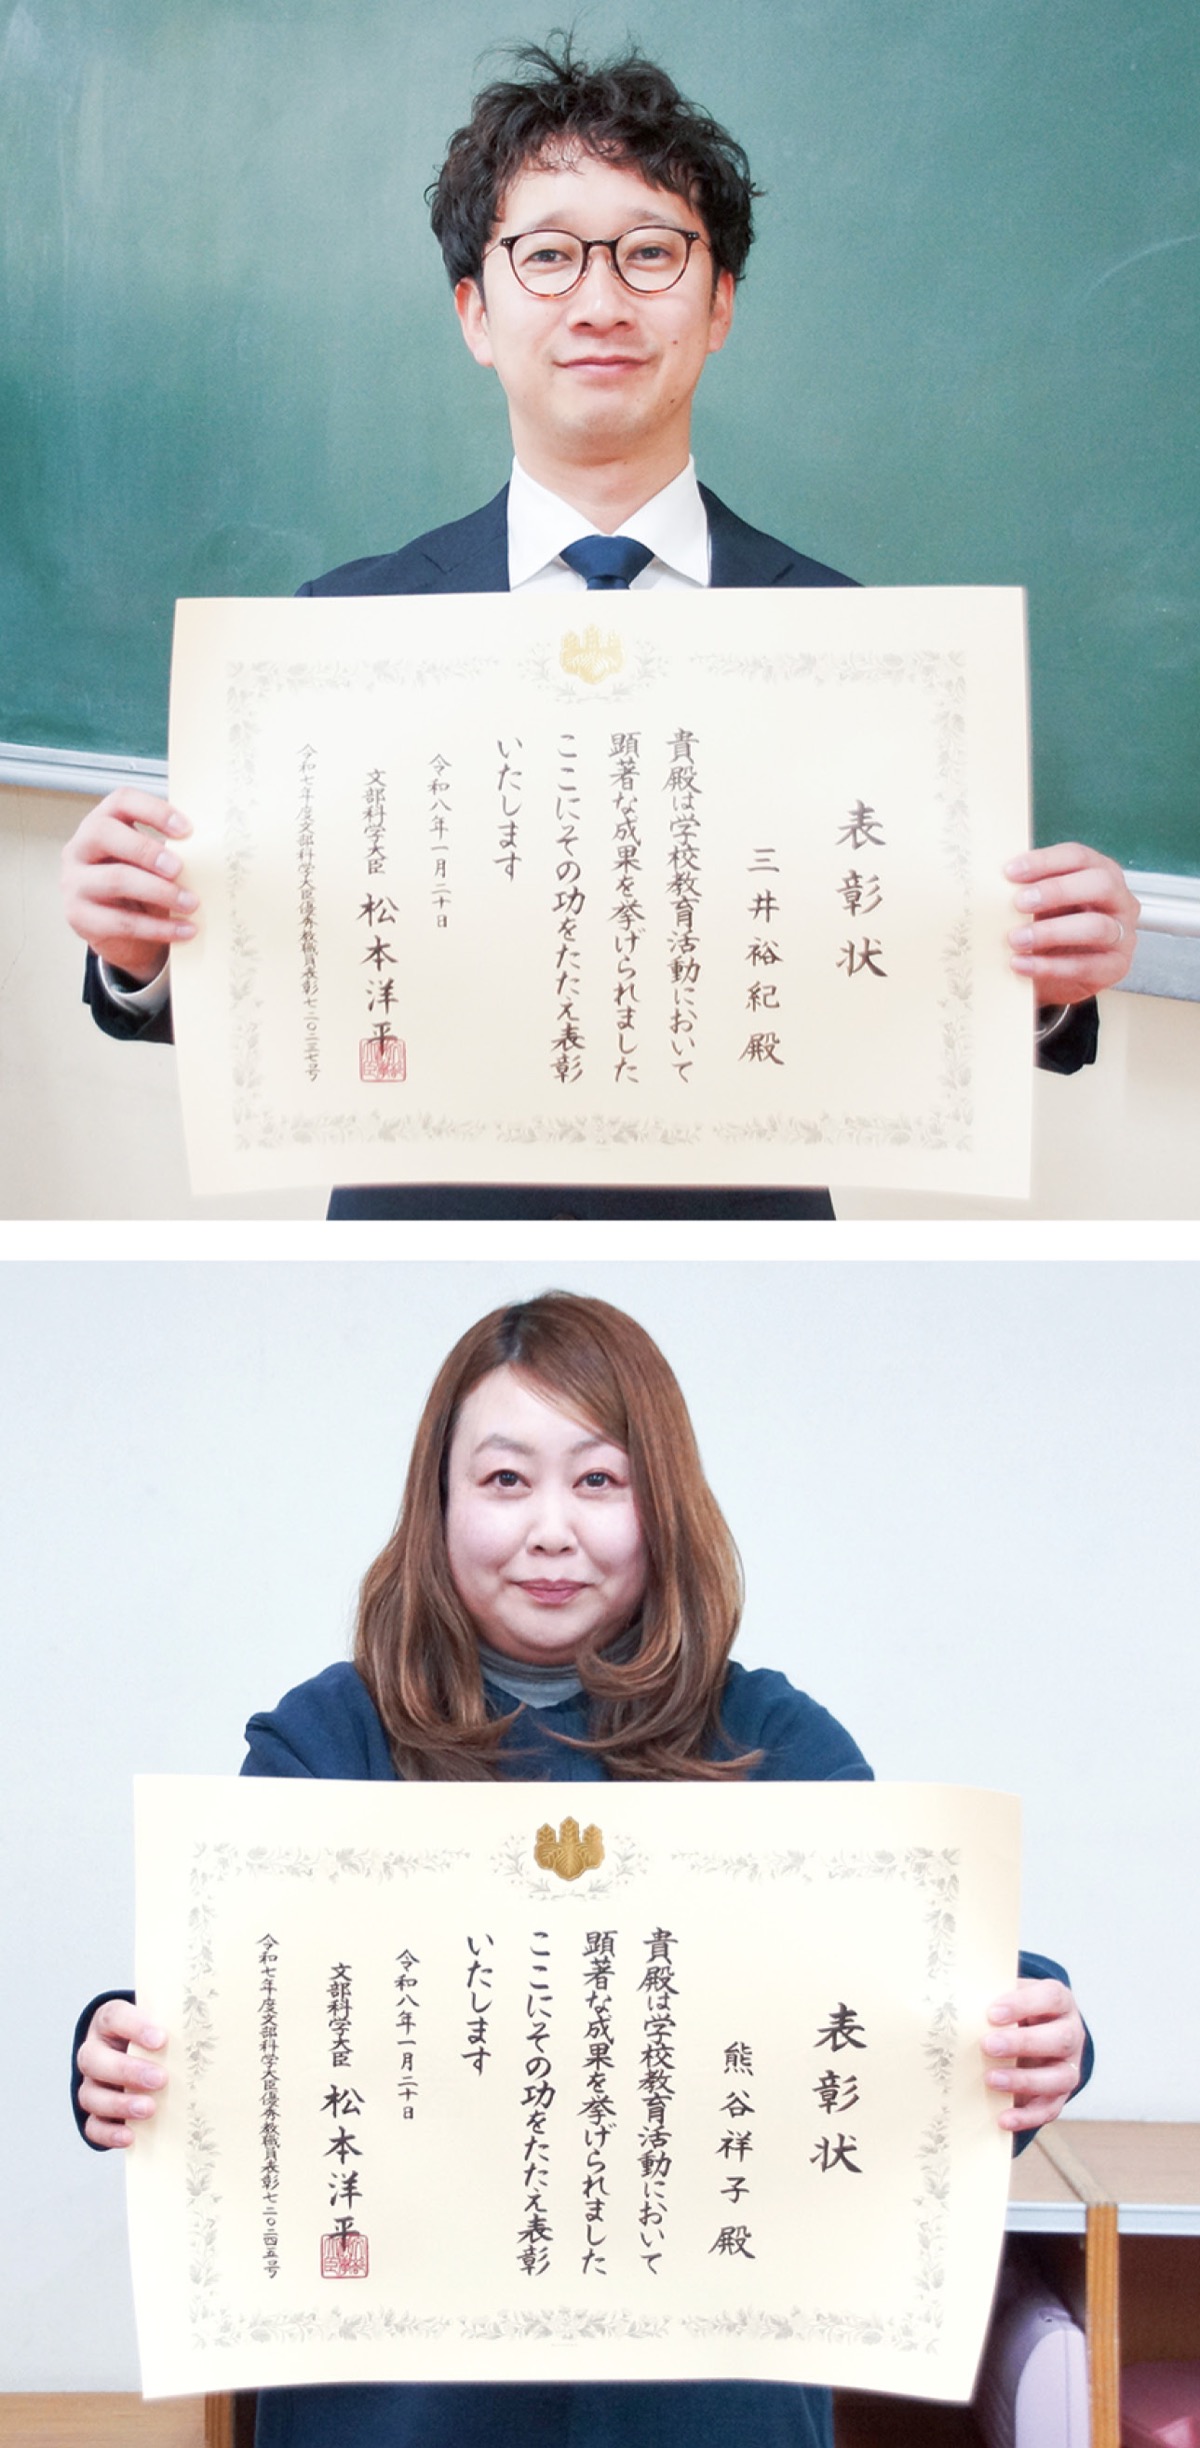 表彰状
三井裕紀殿
貴殿は学校教育活動において
顕著な成果を挙げられました
ここにその功をたたえ表彰
いたします
令和八年一月二十日
文部科学大臣 松本洋平
令和七年度文部科学大臣優秀教職員表彰七二〇二三七号
表彰状
熊谷祥子殿
貴殿は学校教育活動において
顕著な成果を挙げられました
ここにその功をたたえ表彰
いたします
令和八年一月二十日
文部科学大臣 松本洋平
令和七年度文部科学大臣優秀教職員表彰七二〇二四五号